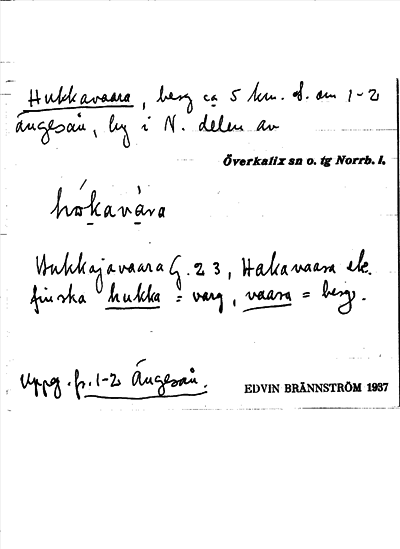 Hukkavaara, berg ca 5 km. S. om 1-2
Ängesån, by i N. delen av
Överkalix sn o. tg Norrb. l.
hòkavàra
Hukkajavaara G. 23, Hakavaara ek.
finska hukka = varg, vaara = berg.
Uppg. fr. 1-2 Ängesån.
EDVIN BRÄNNSTRÖM 1937